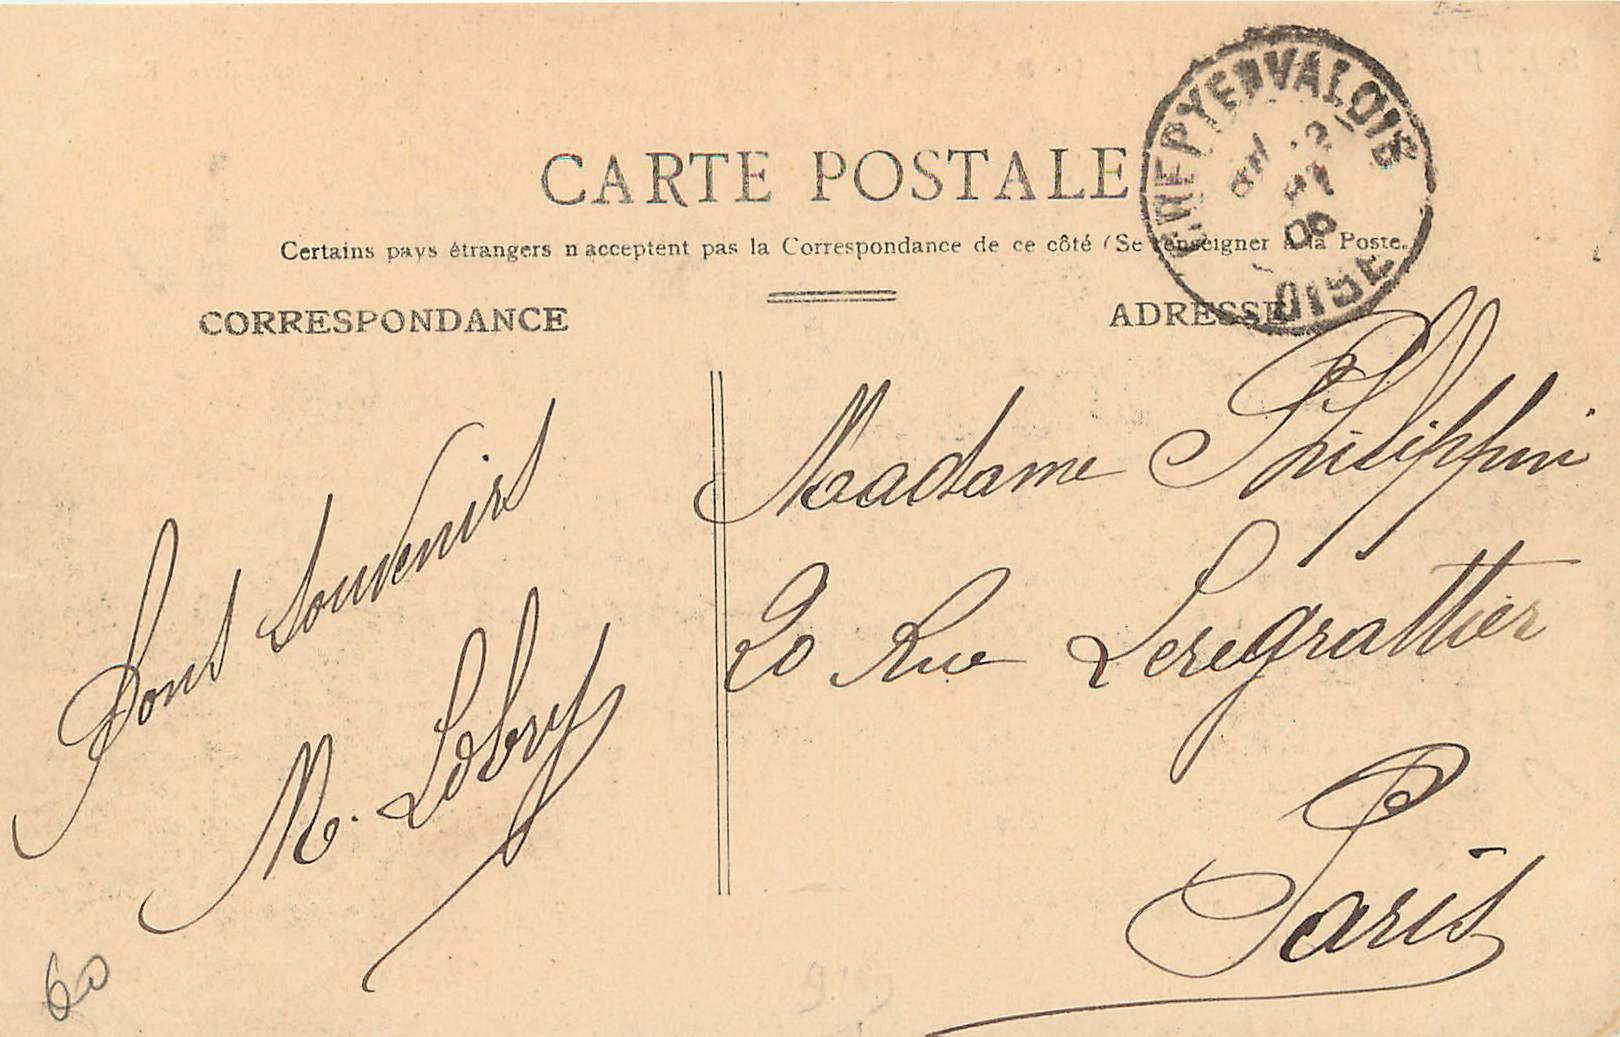 CARTE POSTALE
Certains pays étrangers n'acceptent pas la Correspondance de ce côté (Se renseigner à la Poste.
CORRESPONDANCE
ADRESSE
CREPY EN VALOIS
OISE
Bons souvenirs
M. Lebry
Madame Philippini
20 Rue Leregrattier
Paris
60